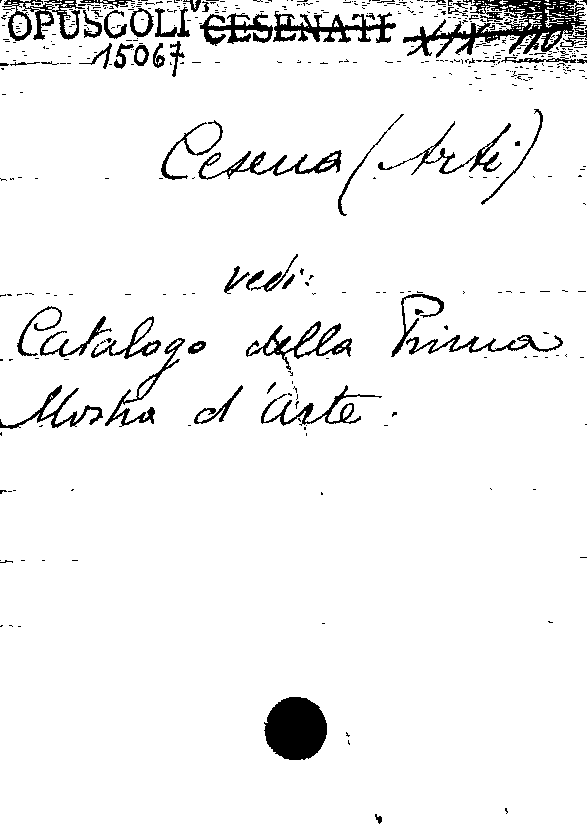 OPUSCOLI CESENATI XIX 110
15067
Cesena (Arti)
vedi:
Catalogo della Prima
Mostra d'Arte.